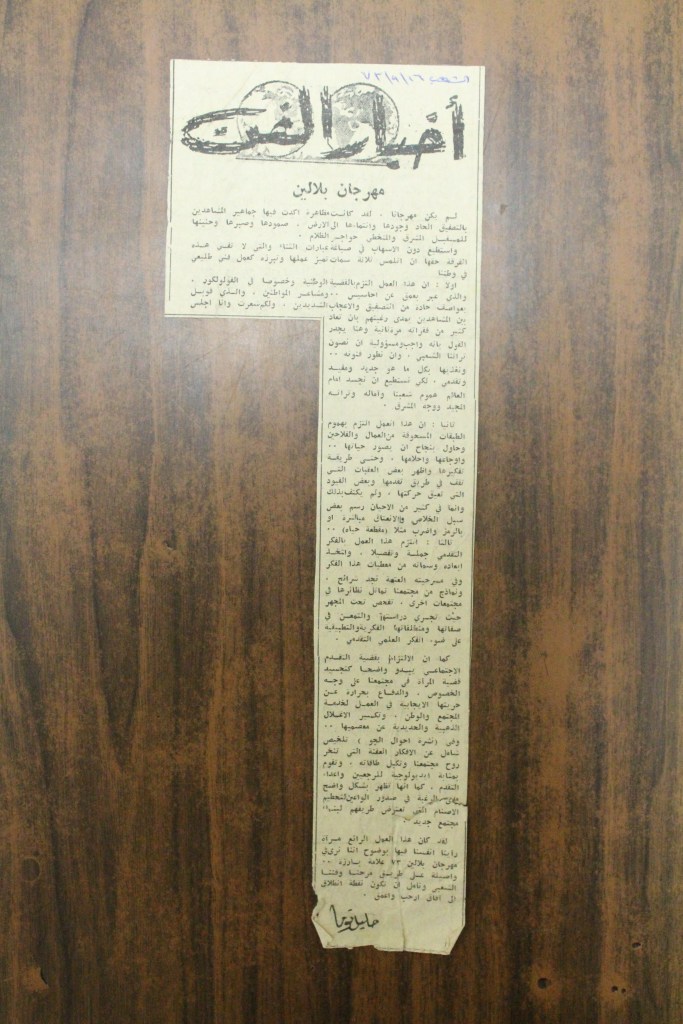 الشعب ٧٣/٩/١٦
أخبار الفن
مهرجان بلالين
لم يكن مهرجانا ، لقد كانت مظاهرة أكدت فيها جماهير المشاهدين
بالتصفيق الحاد وجودها وانتماءها الى الارض ، صمودها وصبرها وحنينها
للمستقبل المشرق والمتخطي حواجز الظلام .
واستطيع دون الاسهاب في صياغة عبارات الثناء والتي لا تفي هذه
الفرقة حقها ان اتلمس ثلاثة سمات تميز عملها وتبرزه كعمل فني طليعي
في وطننا
اولا : ان هذا العمل التزم بالقضية الوطنية وخصوصا في الفولولكور .
والذي عبر بعمق عن احاسيس ومشاعر المواطنين ، والذي قوبل
بعواصف حادة من التصفيق والاعجاب الشديدين . ولكم شعرت وانا اجلس
بين المشاهدين بمدى رغبتهم بان تعاد
كثير من فقراته مرة ثانية وهنا يجدر
القول بانه واجب ومسؤولية ان نصون
تراثنا الشعبي . وان نطور فنونه ٠٠
ونغذيها بكل ما هو جديد ومفيد
وتقدمي . لكي نستطيع ان نجسد امام
العالم هموم شعبنا وآماله وتراثه
المجيد ووجه المشرق .
ثانيا : ان هذا العمل التزم بهموم
الطبقات المسحوقة من العمال والفلاحين
وحاول بنجاح ان يصور حياتها ٠٠
واوجاعها واحلامها . وحتى طريقة
تفكيرها واظهر بعض العقبات التي
تقف في طريق تقدمها وبعض القيود
التي تعيق حركتها . ولم يكتف بذلك
وانما في كثير من الاحيان رسم بعض
سبل الخلاص والانعتاق مباشرة او
بالرمز واضرب مثلا (مقطعة حياة) ٠٠
ثالثا : التزم هذا العمل بالفكر
التقدمي جملة وتفصيلا . واتخذ
ابعاده وسماته من معطيات هذا الفكر
وفي مسرحيته العتمة نجد شرائح .
ونماذج من مجتمعنا تماثل نظائرها في
مجتمعات اخرى . تفحص تحت المجهر
حيث تجري دراستها والتمعن في
صفاتها ومنطلقاتها الفكرية والتطبيقية
على ضوء الفكر العلمي التقدمي .
كما ان الالتزام بقضية التقدم
الاجتماعي يبدو واضحا كتجسيد
قضية المرأة في مجتمعنا على وجه
الخصوص . والدفاع بحرارة عن
حريتها الايجابية في العمل لخدمة
المجتمع والوطن . وتكسير الاغلال
الذهبية والحديدية عن معصميها ٠٠
وفي (نشرة احوال الجو) تلخيص
شامل عن الافكار العفنة التي تنخر
روح مجتمعنا وتكبل طاقاته . وتقوم
بمثابة ايديولوجية للرجعيين واعداء
التقدم . كما انها تظهر بشكل واضح
الرغبة في صدور الواعين لتحطيم
الاصنام التي تعترض طريقهم لبناء
مجتمع جديد .
لقد كان هذا العمل الرائع مرآة
رأينا انفسنا فيها بوضوح اننا نرى في
مهرجان بلالين ٧٣ علامة بارزة ٠٠
واصيلة على طريق مرحنا وفننا
الشعبي ونأمل ان تكون نقطة انطلاق
الى آفاق ارحب واعمق .
خليل توما